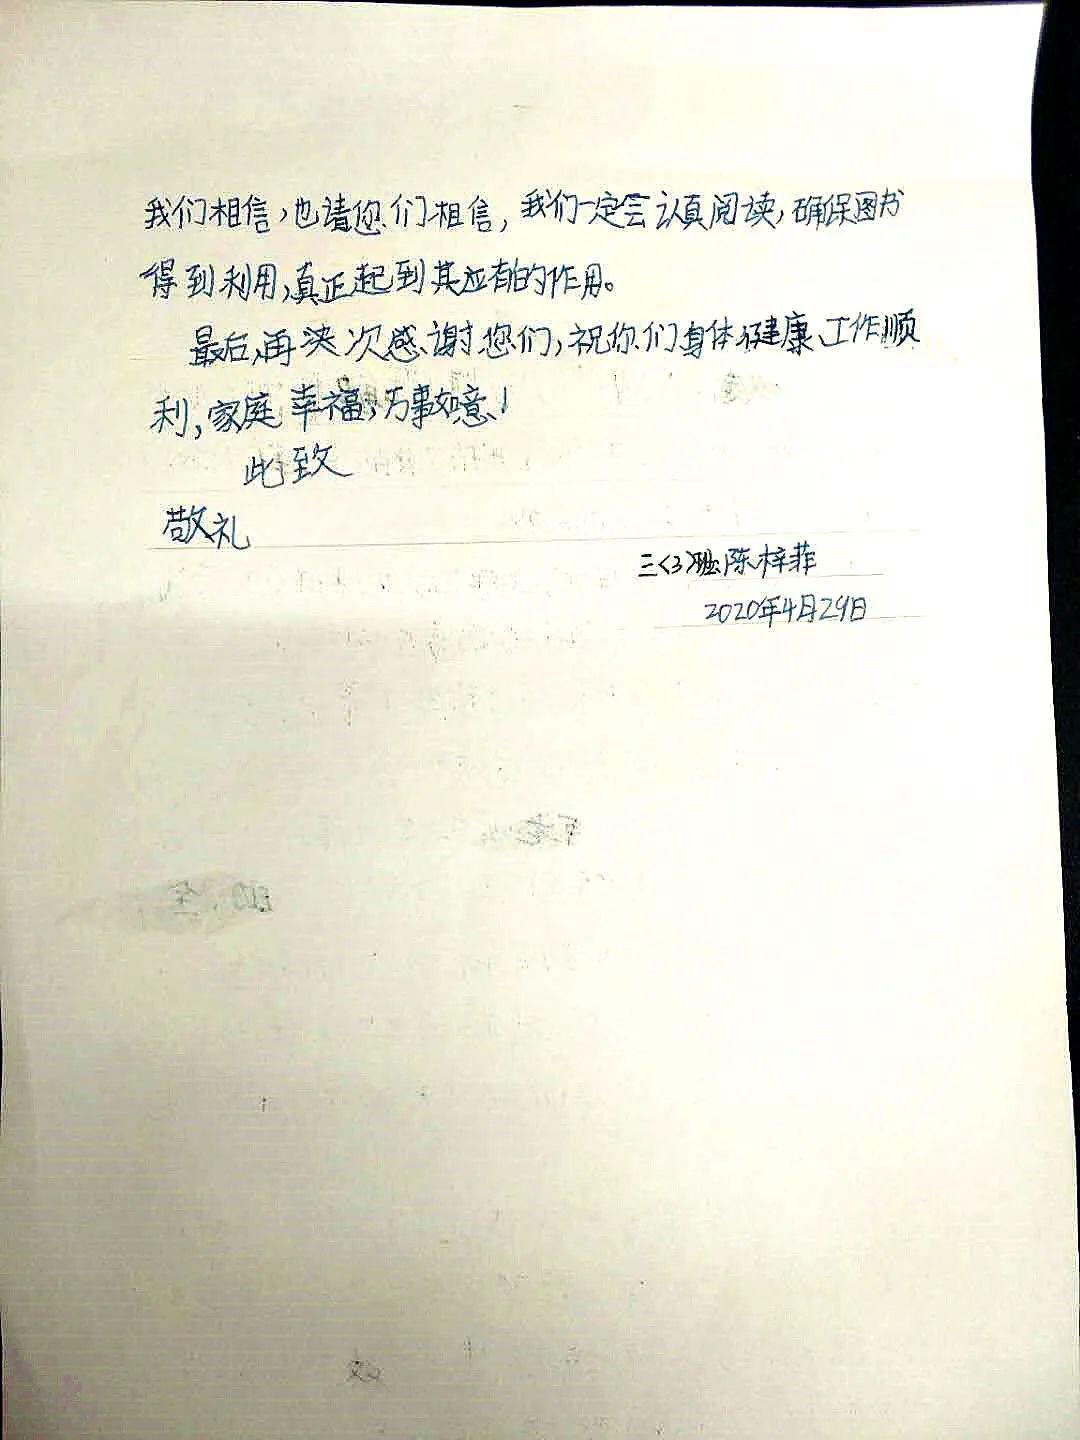 我们相信，也请您们相信，我们一定会认真阅读，确保图书
得到利用，真正起到其应有的作用。
最后，再决次感谢您们，祝你们身体健康、工作顺
利，家庭幸福，万事如意！
此致
敬礼
三〈3〉班陈梓菲
2020年4月29日